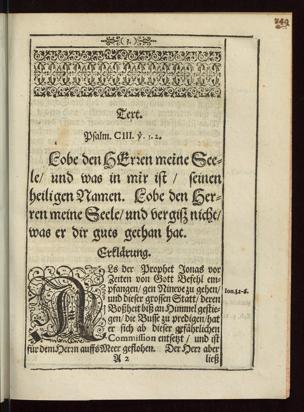 (3.)
249
Text.
Psalm. CIII. ℣. 1. 2.
Lobe den HErren meine See-
le/ und was in mir ist / seinen
heiligen Namen. Lobe den Her-
ren meine Seele/ und vergiß nicht/
was er dir guts gethan hat.
Erklärung.
ALs der Prophet Jonas vor
Zeiten von Gott Befehl em-
pfangen/ gen Ninive zu gehen/
und dieser grossen Statt/ deren
Boßheit biß an Himmel gestie-
gen/ die Busse zu predigen/ hat
er sich ab dieser gefährlichen
Commission entsetzt/ und ist
für dem Herrn auffs Meer geflohen. Der Herr aber
A 2 ließ